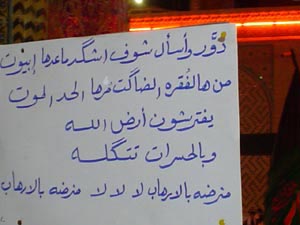 دور وأسأل شوف اشگد ماعدها إبيوت
من هالفقره الضاگت مرها الحد الموت
يفترشون أرض الله
وبالحسرات تتگله
منرضه بالارهاب لا لا لا منرضه بالارهاب